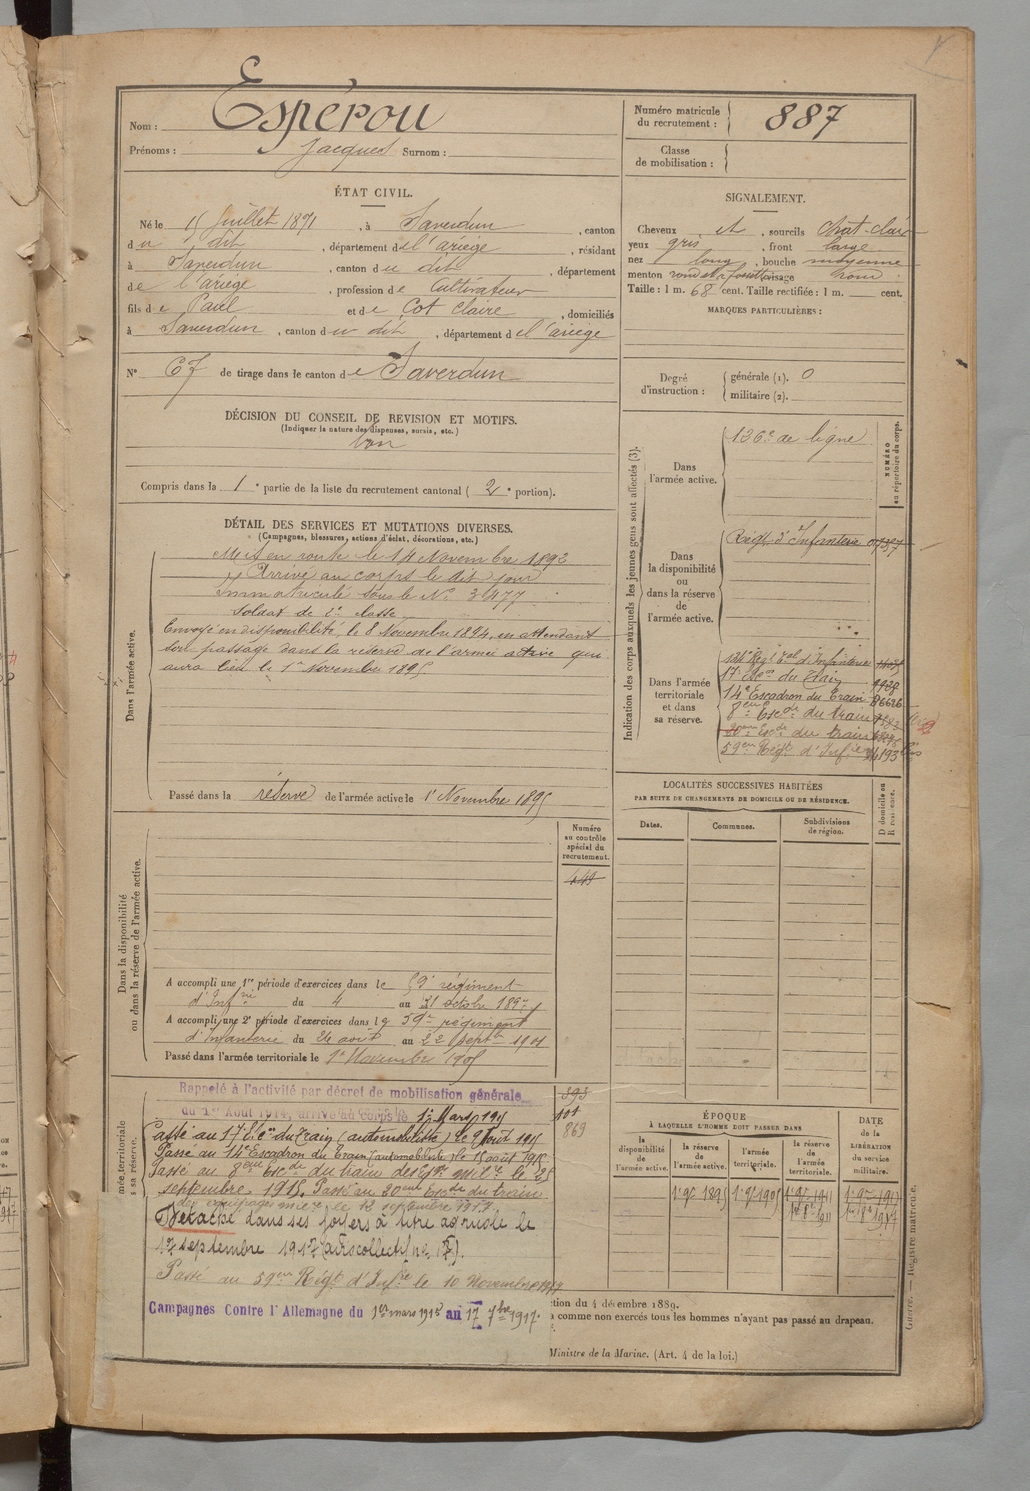 Nom : Espérou
Prénoms : Jacques Surnom :
Numéro matricule du recrutement : 887
Classe de mobilisation :
ÉTAT CIVIL.
Né le 15 Juillet 1871, à Saverdun, canton
du dit, département de l'ariège, résidant
à Saverdun, canton du dit, département
de l'ariège, profession de Cultivateur
fils de Paul et de Cot Claire, domiciliés
à Saverdun, canton du dit, département de l'ariège
N° 67 de tirage dans le canton de Saverdun
SIGNALEMENT.
Cheveux et, sourcils chat-clair
yeux gris, front large
nez long, bouche moyenne
menton rond à fossette visage rond
Taille : 1 m. 68 cent. Taille rectifiée : 1 m. cent.
MARQUES PARTICULIÈRES :
Degré d'instruction : générale (1). 0
militaire (2).
DÉCISION DU CONSEIL DE REVISION ET MOTIFS.
(Indiquer la nature des dispenses, sursis, etc.)
bon
Compris dans la 1e partie de la liste du recrutement cantonal (2e portion).
DÉTAIL DES SERVICES ET MUTATIONS DIVERSES.
(Campagnes, blessures, actions d'éclat, décorations, etc.)
Dans l'armée active.
Mis en route le 14 Novembre 1892
Arrivé au corps le dit jour
Immatriculé sous le N° 3477
Soldat de 2e classe
Envoyé en disponibilité, le 8 Novembre 1894, en attendant
son passage dans la réserve de l'armée active qui
aura lieu le 1er Novembre 1895
Passé dans la réserve de l'armée active le 1r Novembre 1895
Indication des corps auxquels les jeunes gens sont affectés (3).
NUMÉRO au répertoire du corps.
Dans l'armée active.
136e de ligne
Dans la disponibilité ou dans la réserve de l'armée active.
Régt d'Infanterie
Dans l'armée territoriale et dans sa réserve.
Régt Tal d'Infanterie
14e Escadron du Train
8eme Escdn du train
20eme Escdn du train
59eme Régt d'Infie
LOCALITÉS SUCCESSIVES HABITÉES
PAR SUITE DE CHANGEMENTS DE DOMICILE OU DE RÉSIDENCE.
Dates. Communes. Subdivisions de région. D domicile ou R résidence.
Dans la disponibilité ou dans la réserve de l'armée active.
Numéro au contrôle spécial du recrutement.
449
A accompli une 1re période d'exercices dans le 59e régiment
d'Infrie du 4 au 31 octobre 1897
A accompli une 2e période d'exercices dans le 59e régiment
d'Infanterie du 26 août au 22 septbre 1901
Passé dans l'armée territoriale le 1er Novembre 1905
Rappelé à l'activité par décret de mobilisation générale
du 1er Août 1914, arrivé au corps le 1er Mars 1915
393
101
869
Passé au 14e Escadron du Train (automobiliste) le 15 août 1915
Passé au 8eme Escdn du train des Eqes milres le 25
septembre 1915. Passé au 20eme Escdn du train
des équipages mires le 12 septembre 1917
Détaché dans ses foyers à titre agricole le
1er septembre 1917
Passé au 59eme Régt d'Infrie le 10 Novembre 1917
Campagnes Contre l'Allemagne du 1er mars 1915 au 17 7bre 1917.
ÉPOQUE
À LAQUELLE L'HOMME DOIT PASSER DANS
la disponibilité de l'armée active. la réserve de l'armée active. l'armée territoriale. la réserve de l'armée territoriale.
DATE de la LIBÉRATION du service militaire.
1r 9e 1895 1r 9e 1905 1r 9e 1911 1r 9e 1917
1er 8e 1911 1er 8e 1917
ction du 4 décembre 1889.
comme non exercés tous les hommes n'ayant pas passé au drapeau.
Ministre de la Marine. (Art. 4 de la loi.)
Guerre. — Registre matricule.